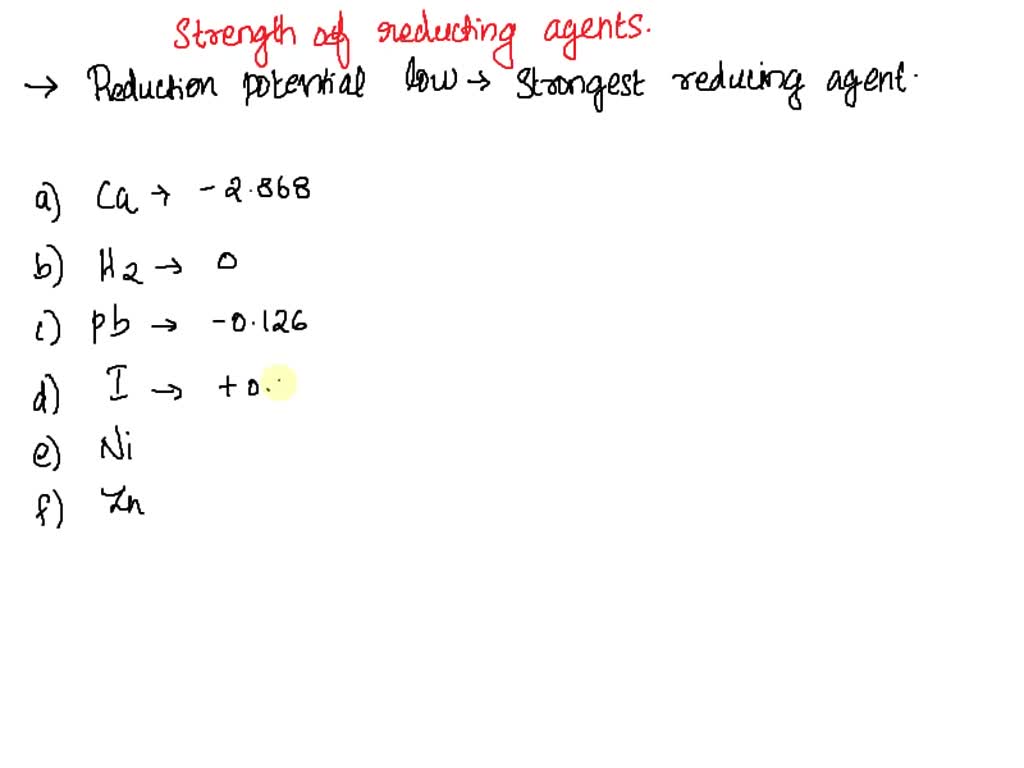 Strength of reducting agents.
→ Reduction potential low → Strongest reducing agent.
a) Ca → -2.868
b) H2 → 0
c) Pb → -0.126
d) I → +0.
e) Ni
f) Zn